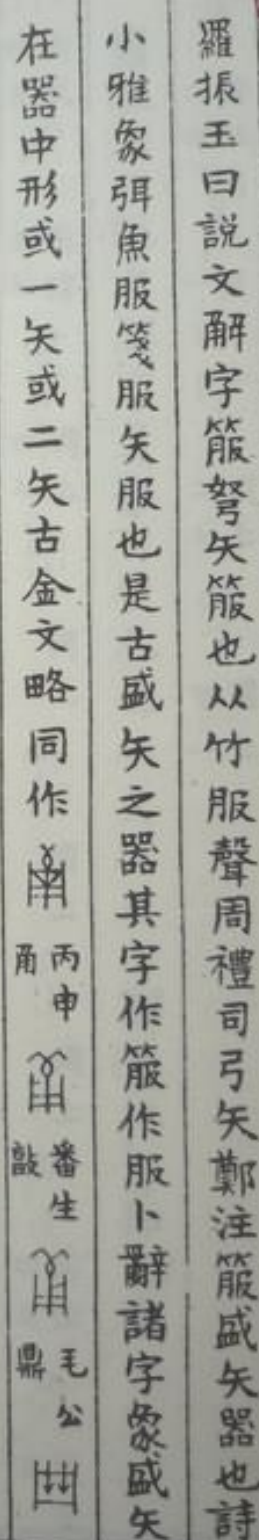 羅振玉曰説文解字箙弩矢箙也从竹服聲周禮司弓矢鄭注箙盛矢器也詩
小雅象弭魚服箋服矢服也是古盛矢之器其字作箙作服卜辭諸字象盛矢
在器中形或一矢或二矢古金文略同作丙申角番生敦毛公鼎